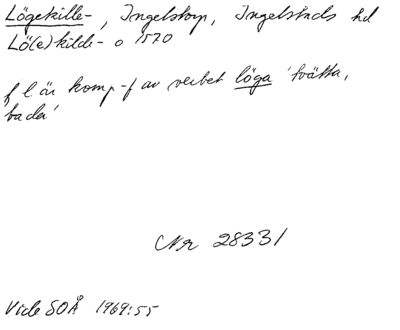 Lögekille-, Ingelstorp, Ingelstads hd
Lö(e)kilde- o 1570
f l är komp-f av verbet löga 'tvätta,
bada'
Nr 28331
Vide SOÅ 1969:55